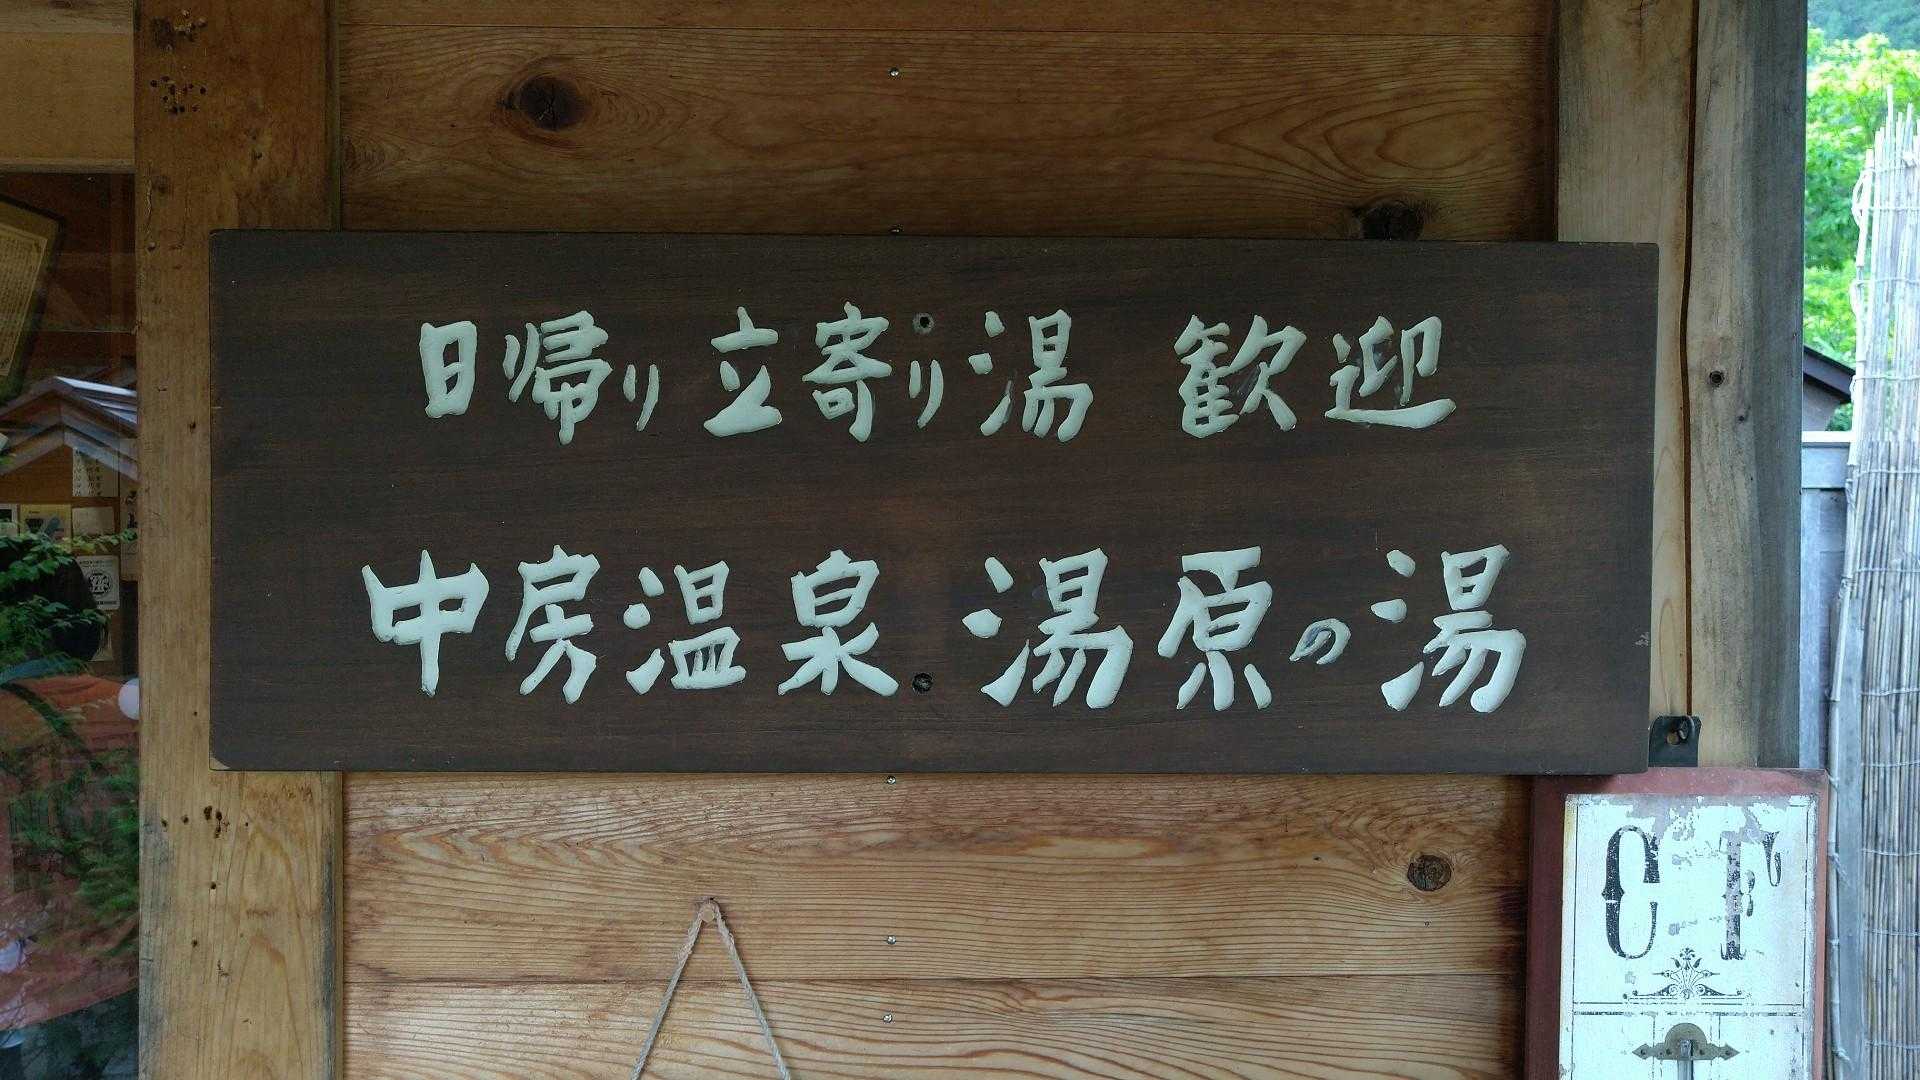 日帰り立寄り湯 歓迎
中房温泉 湯原の湯
C F